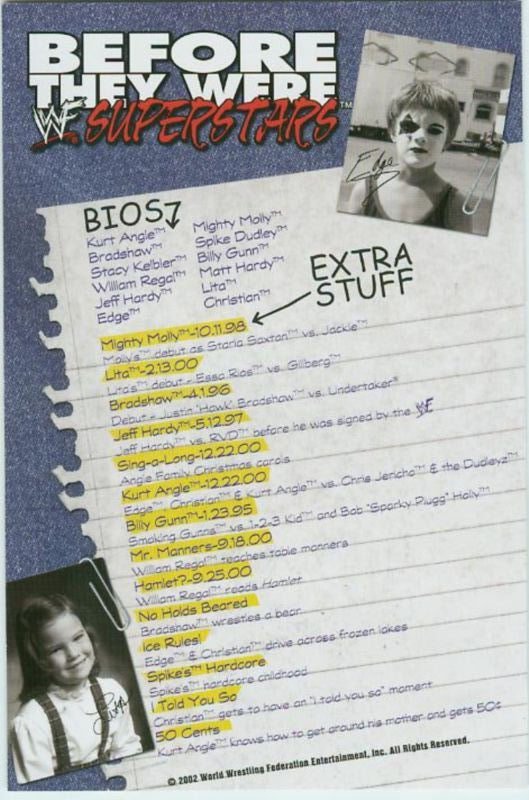 BEFORE
THEY WERE
WF SUPERSTARS™
Edge
BIOS
Kurt Angle™
Bradshaw™
Stacy Keibler™
William Regal™
Jeff Hardy™
Edge™
Mighty Molly™
Spike Dudley™
Billy Gunn™
Matt Hardy™
Lita™
Christian™
EXTRA
STUFF
Mighty Molly™-10.11.98
Molly's™ debut as Starla Saxton™ vs. Jackie™
Lita™-2.13.00
Lita's™ debut - Essa Rios™ vs. Gillberg™
Bradshaw™-4.1.96
Debut - Justin "Hawk" Bradshaw™ vs. Undertaker®
Jeff Hardy™-5.12.97
Jeff Hardy™ vs. RVD™ before he was signed by the WF
Sing-a-Long-12.22.00
Angle Family Christmas carols
Kurt Angle™-12.22.00
Edge™, Christian™ & Kurt Angle™ vs. Chris Jericho™ & the Dudleyz™
Billy Gunn™-1.23.95
Smoking Gunns™ vs. 1-2-3 Kid™ and Bob "Sparky Plugg" Holly™
Mr. Manners-9.18.00
William Regal™ teaches table manners
Hamlet?-9.25.00
William Regal™ reads Hamlet
No Holds Beared
Bradshaw™ wrestles a bear
Ice Rules!
Edge™ & Christian™ drive across frozen lakes
Spike's™ Hardcore
Spike's™ hardcore childhood
I Told You So
Christian™ gets to have an "I told you so" moment
50 Cents
Kurt Angle™ knows how to get around his mother and gets 50¢
Lita
© 2002 World Wrestling Federation Entertainment, Inc. All Rights Reserved.